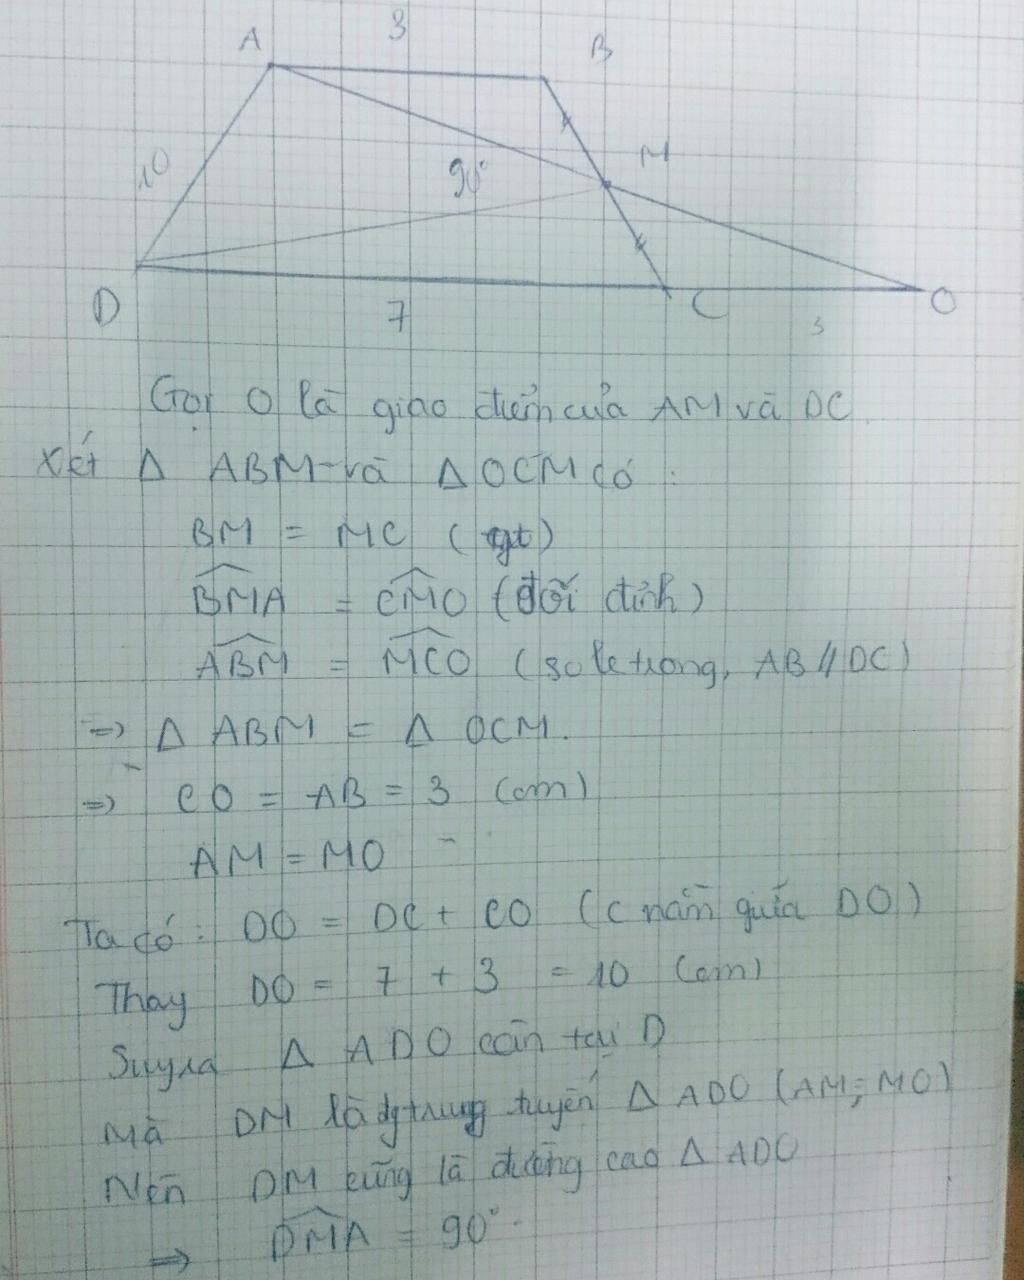 A 3 B
10 90° M
D 7 C 3 O
Gọi O là giao điểm của AM và DC
Xét Δ ABM và Δ OCM có :
BM = MC (gt)
BMA = CMO (đối đỉnh)
ABM = MCO (so le trong, AB // DC)
=> Δ ABM = Δ OCM.
=> CO = AB = 3 (cm)
AM = MO
Ta có : DO = DC + CO (C nằm giữa DO)
Thay DO = 7 + 3 = 10 (cm)
Suy ra Δ ADO cân tại D
Mà DM là đg trung tuyến Δ ADO (AM = MO)
Nên DM cũng là đường cao Δ ADO
=> DMA = 90°